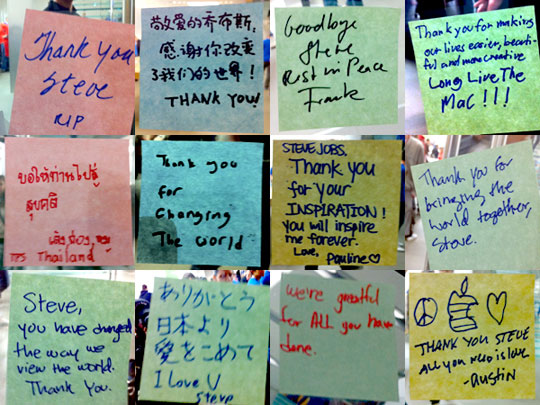 Thank you
Steve
RIP
敬爱的乔布斯,
感谢你改变
了我们的世界!
THANK YOU!
Goodbye
Steve
Rest in Peace
Frank
Thank you for making
our lives easier, beauti-
ful and more creative
LONG LIVE THE
MAC!!!
ขอให้ท่านไปสู่
สุขคติ
TPS Thailand
Thank you
for
changing
The world
STEVE JOBS.
Thank you
for your
INSPIRATION!
you will inspire
me forever.
Love, Pauline♡
Thank you for
bringing the
world together,
Steve.
Steve,
you have changed
the way we
view the world.
Thank You.
ありがとう
日本より
愛をこめて
I Love U
Steve
we're greatful
for ALL you have
done.
THANK YOU STEVE
ALL YOU NEED IS LOVE
-AUSTIN